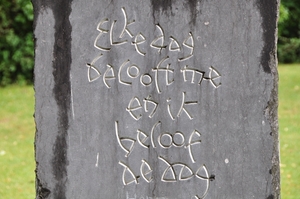 Elke dag
belooft me
en ik
beloof
de dag